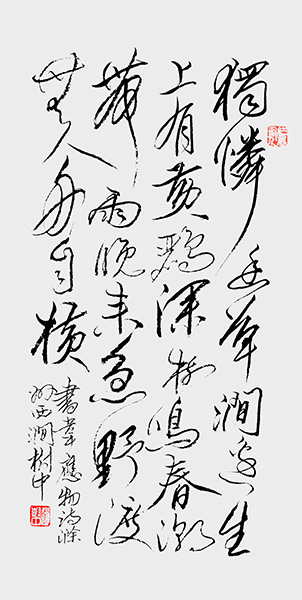 獨憐幽草澗邊生
上有黃鸝深樹鳴春潮
帶雨晚来急野渡
無人舟自橫
書韋應物詩滁
州西澗樹中